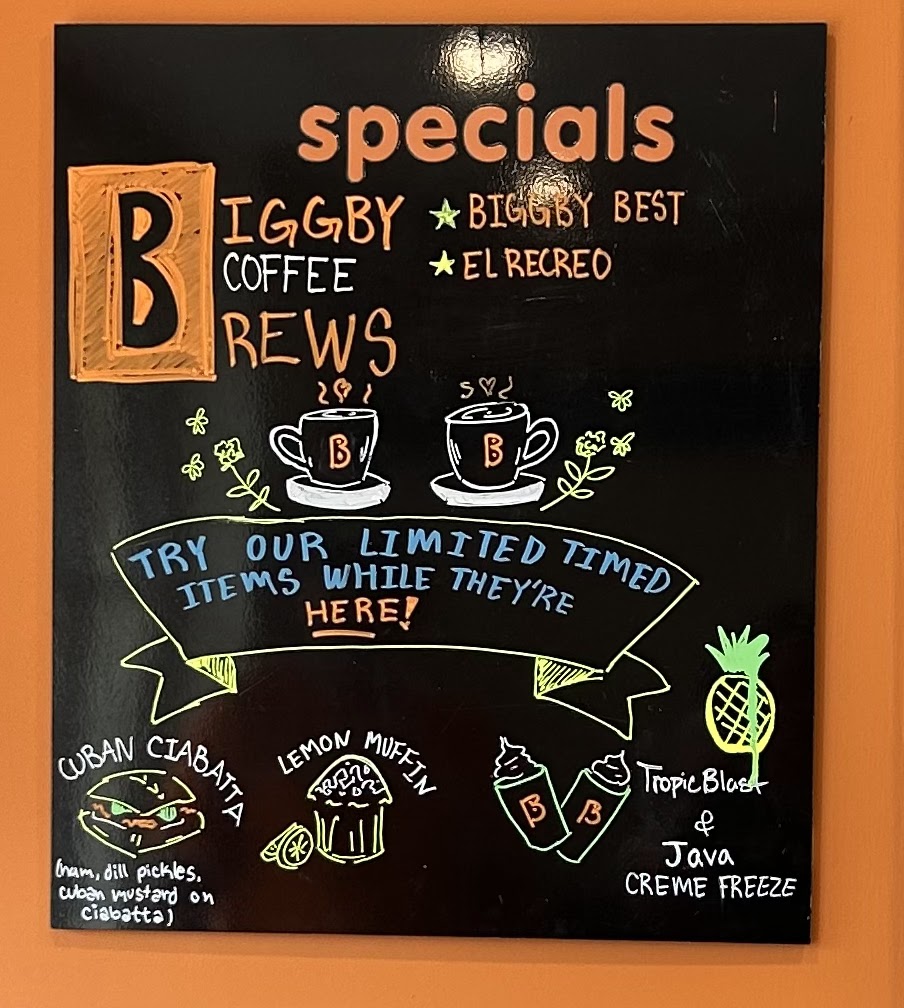 specials
BIGGBY
COFFEE
BREWS
BIGGBY BEST
EL RECREO
B
B
TRY OUR LIMITED TIMED
ITEMS WHILE THEY'RE
HERE!
CUBAN CIABATTA
(ham, dill pickles,
cuban mustard on
ciabatta)
LEMON MUFFIN
B
B
Tropic Blast
&
Java
CREME FREEZE